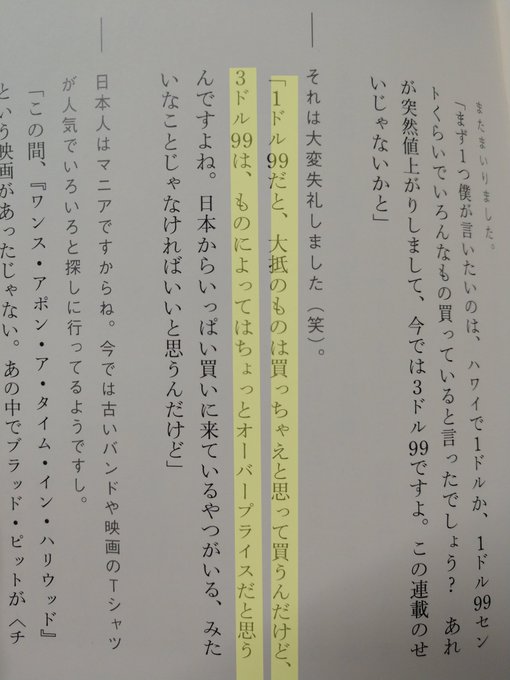 またまいりました。
「まず1つ僕が言いたいのは、ハワイで1ドルか、1ドル99セン
トくらいでいろんなもの買っていると言ったでしょう？　あれ
が突然値上がりしまして、今では3ドル99ですよ。この連載のせ
いじゃないかと」
――それは大変失礼しました（笑）。
「1ドル99だと、大抵のものは買っちゃえと思って買うんだけど、
3ドル99は、ものによってはちょっとオーバープライスだと思う
んですよね。日本からいっぱい買いに来ているやつがいる、みた
いなことじゃなければいいと思うんだけど」
――日本人はマニアですからね。今では古いバンドや映画のTシャツ
が人気でいろいろと探しに行ってるようですし。
「この間、『ワンス・アポン・ア・タイム・イン・ハリウッド』
という映画があったじゃない。あの中でブラッド・ピットが〈チ